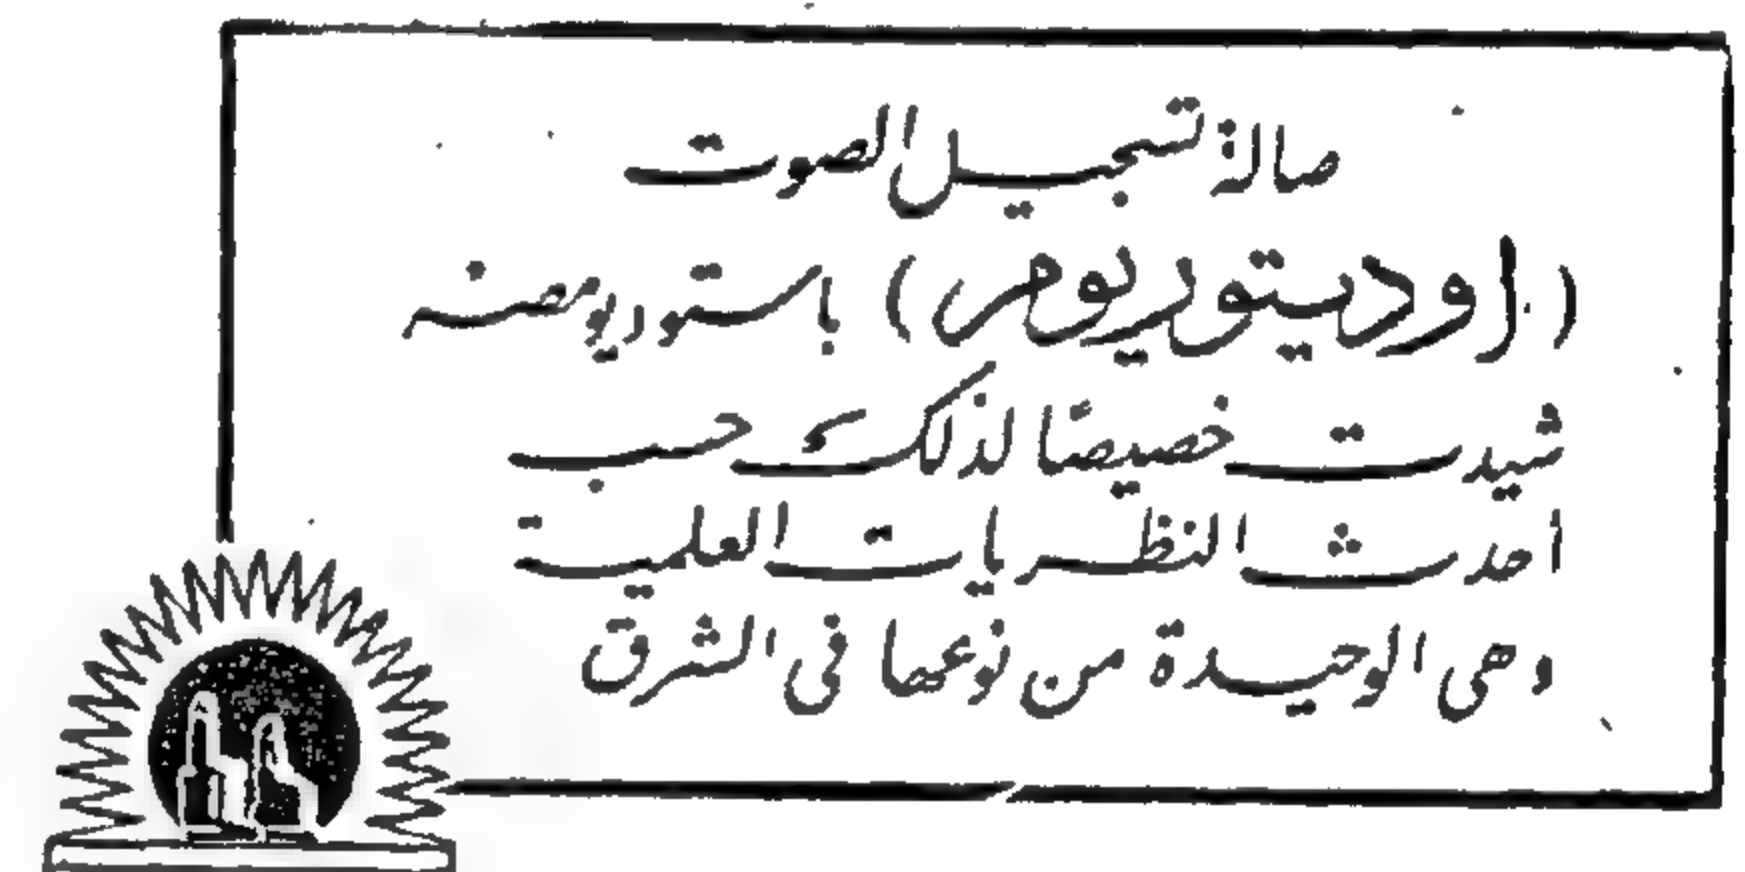 صالة تسجيل الصوت
(اوديتوريوم) باستوديو مصر
شيدت خصيصًا لذلك حسب
أحدث النظريات العلمية
وهى الوحيدة من نوعها فى الشرق